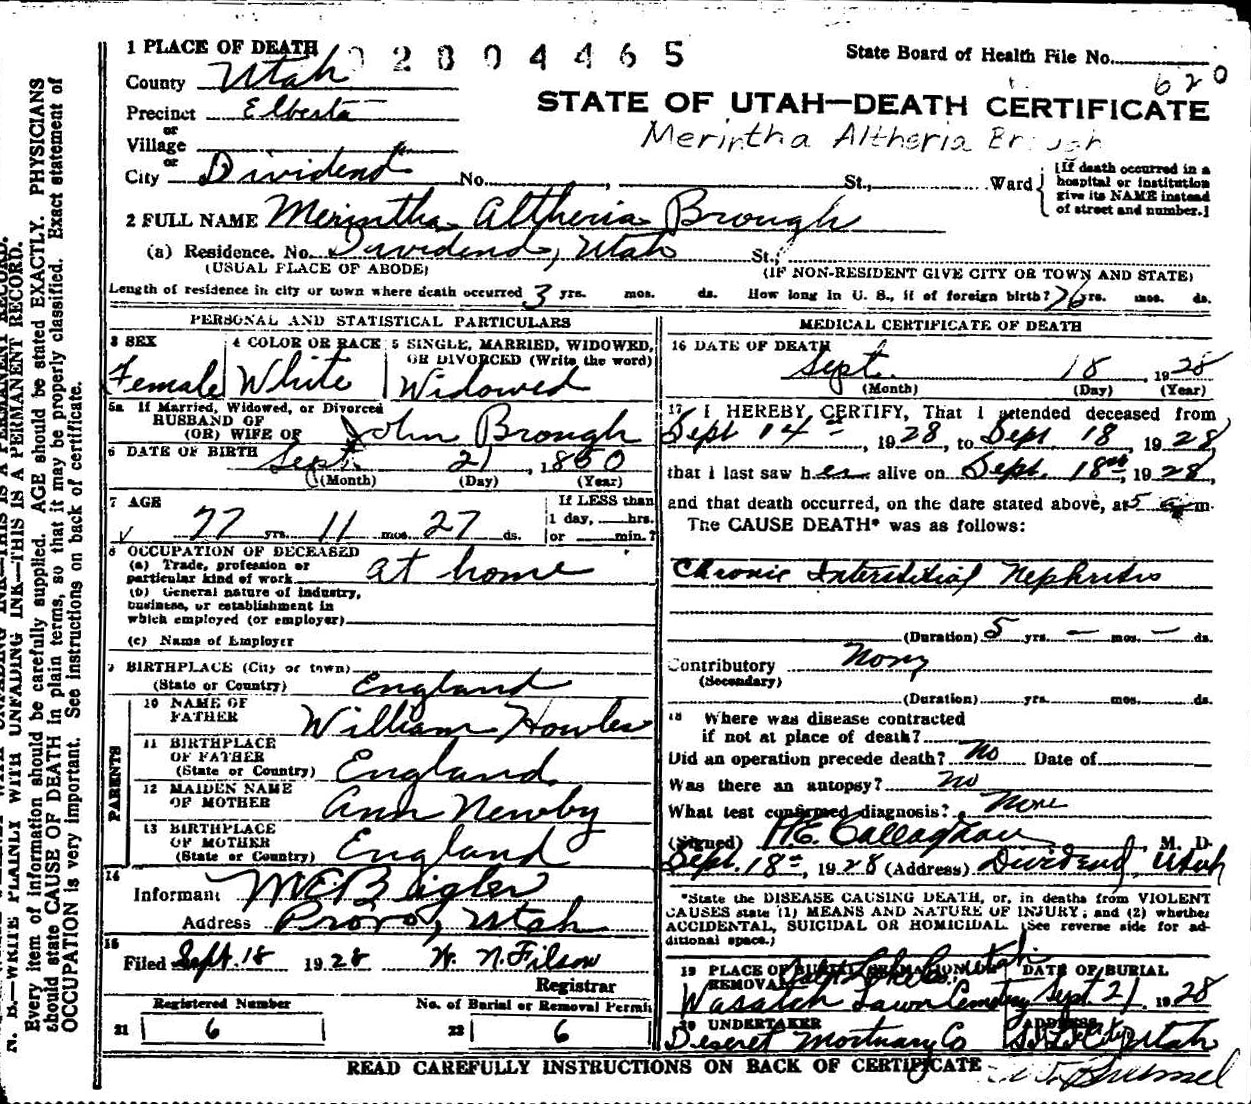 1 PLACE OF DEATH 2804465 State Board of Health File No.
County Utah 620
Precinct Elberta STATE OF UTAH—DEATH CERTIFICATE
or
Village Merintha Altheria Brough
or
City Dividend No. , St., Ward [If death occurred in a hospital or institution give its NAME instead of street and number.]
2 FULL NAME Merintha Altheria Brough
(a) Residence. No. Dividend, Utah St.,
(USUAL PLACE OF ABODE) (IF NON-RESIDENT GIVE CITY OR TOWN AND STATE)
Length of residence in city or town where death occurred 3 yrs. mos. ds. How long in U. S., if of foreign birth? 76 yrs. mos. ds.
PERSONAL AND STATISTICAL PARTICULARS
3 SEX 4 COLOR OR RACE 5 SINGLE, MARRIED, WIDOWED, OR DIVORCED (Write the word)
Female White Widowed
5a If Married, Widowed, or Divorced
HUSBAND OF
(OR) WIFE OF John Brough
6 DATE OF BIRTH Sept. 21, 1850
(Month) (Day) (Year)
7 AGE If LESS than
77 yrs. 11 mos. 27 ds. 1 day, hrs.
or min.?
8 OCCUPATION OF DECEASED
(a) Trade, profession or
particular kind of work at home
(b) General nature of industry,
business, or establishment in
which employed (or employer)
(c) Name of Employer
9 BIRTHPLACE (City or town)
(State or Country) England
PARENTS
10 NAME OF
FATHER William Howles
11 BIRTHPLACE
OF FATHER
(State or Country) England
12 MAIDEN NAME
OF MOTHER Ann Newby
13 BIRTHPLACE
OF MOTHER
(State or Country) England
14
Informant
Address Provo, Utah
15
Filed Sept. 18 1928 W. N. Filson
Registrar
Registered Number No. of Burial or Removal Permit
21 6 22 6
MEDICAL CERTIFICATE OF DEATH
16 DATE OF DEATH
Sept. 18, 1928
(Month) (Day) (Year)
17 I HEREBY CERTIFY, That I attended deceased from
Sept 14th, 1928, to Sept 18, 1928,
that I last saw her alive on Sept. 18th, 1928,
and that death occurred, on the date stated above, at 5 a.m.
The CAUSE DEATH* was as follows:
Chronic Interstitial Nephritis
(Duration) 5 yrs. – mos. – ds.
Contributory None
(Secondary)
(Duration) yrs. mos. ds.
18 Where was disease contracted
if not at place of death?
Did an operation precede death? No Date of
Was there an autopsy? No
What test confirmed diagnosis? None
(Signed) H.E. Callaghan, M. D.
Sept. 18th, 1928 (Address) Dividend, Utah
*State the DISEASE CAUSING DEATH, or, in deaths from VIOLENT
CAUSES state (1) MEANS AND NATURE OF INJURY; and (2) whether
ACCIDENTAL, SUICIDAL OR HOMICIDAL. (See reverse side for ad-
ditional space.)
19 PLACE OF REMOVAL Salt Lake Utah DATE OF BURIAL
Wasatch Lawn Cemetery Sept 21 1928
20 UNDERTAKER ADDRESS
Deseret Mortuary Co Utah
READ CAREFULLY INSTRUCTIONS ON BACK OF CERTIFICATE
N. B.—WRITE PLAINLY WITH UNFADING INK—THIS IS A PERMANENT RECORD.
Every item of information should be carefully supplied. AGE should be stated EXACTLY. PHYSICIANS
should state CAUSE OF DEATH in plain terms, so that it may be properly classified. Exact statement of
OCCUPATION is very important. See instructions on back of certificate.